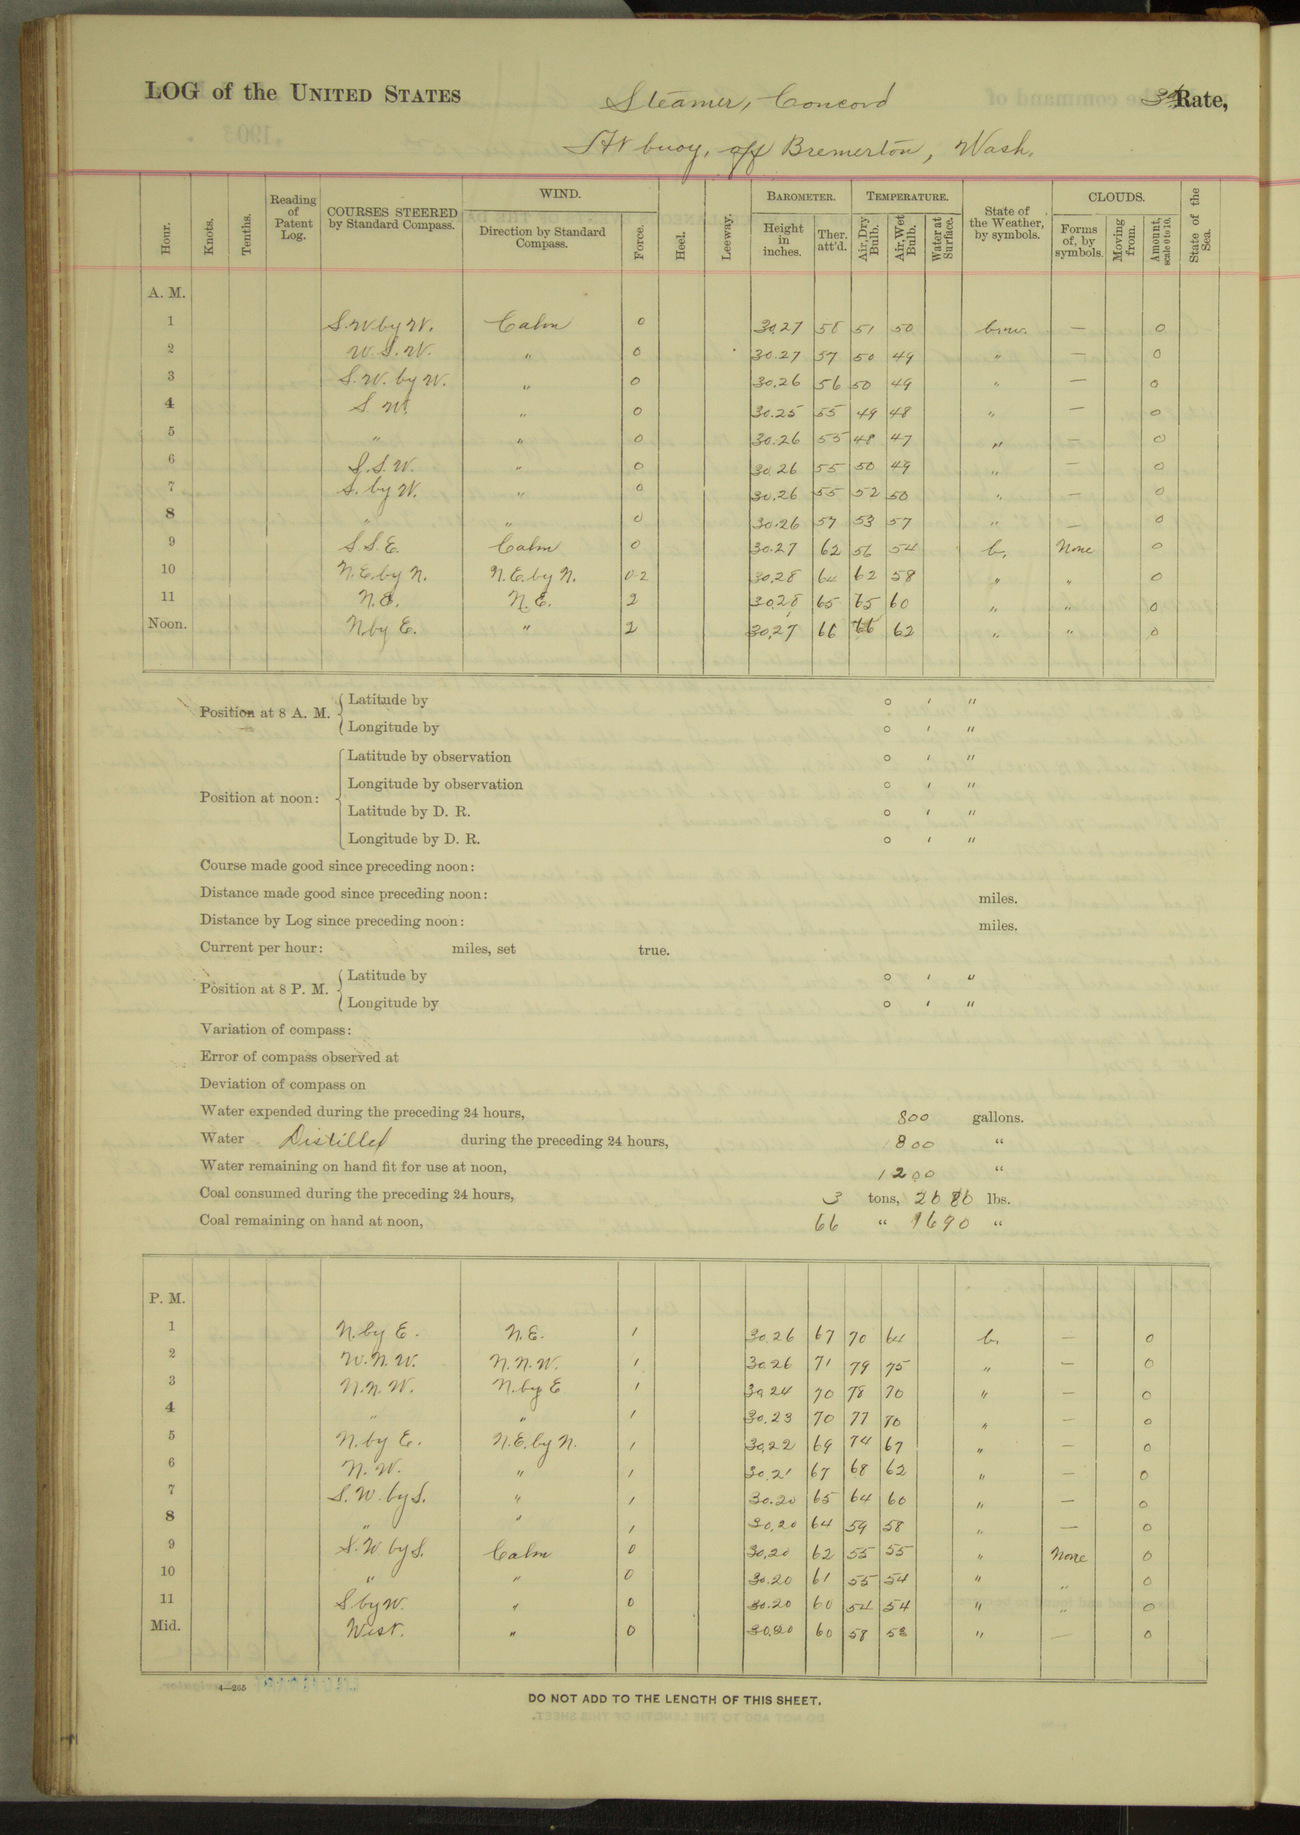 LOG of the UNITED STATES Steamer, Concord 3d Rate,
At buoy, off Bremerton, Wash.
Hour. Knots. Tenths. Reading of Patent Log. COURSES STEERED by Standard Compass. WIND. Direction by Standard Compass. Force. Heel. Leeway. BAROMETER. Height in inches. Ther. att'd. TEMPERATURE. Air, Dry Bulb. Air, Wet Bulb. Water at Surface. State of the Weather, by symbols. CLOUDS. Forms of, by symbols. Moving from. Amount, scale 0 to 10. State of the Sea.
A. M.
1 S.W. by W. Calm 0 30.27 58 51 50 — 0
2 W.S.W. " 0 30.27 57 50 49 " — 0
3 S.W. by W. " 0 30.26 56 50 49 " — 0
4 S.W. " 0 30.25 55 49 48 " — 0
5 " " 0 30.26 55 48 47 " — 0
6 S.S.W. " 0 30.26 55 50 49 " — 0
7 S. by W. " 0 30.26 55 52 50 " — 0
8 " " 0 30.26 57 53 57 " — 0
9 S.S.E. Calm 0 30.27 62 56 54 b. None 0
10 N.E. by N. N.E. by N. 0-2 30.28 64 62 58 " " 0
11 N.E. N.E. 2 30.28 65 65 60 " " 0
Noon. N by E. " 2 30.27 66 66 62 " " 0
Position at 8 A. M. Latitude by ° ' "
Longitude by ° ' "
Position at noon: Latitude by observation ° ' "
Longitude by observation ° ' "
Latitude by D. R. ° ' "
Longitude by D. R. ° ' "
Course made good since preceding noon:
Distance made good since preceding noon: miles.
Distance by Log since preceding noon: miles.
Current per hour: miles, set true.
Position at 8 P. M. Latitude by ° ' "
Longitude by ° ' "
Variation of compass:
Error of compass observed at
Deviation of compass on
Water expended during the preceding 24 hours, 800 gallons.
Water Distilled during the preceding 24 hours, 800 "
Water remaining on hand fit for use at noon, 1200 "
Coal consumed during the preceding 24 hours, 3 tons, lbs.
Coal remaining on hand at noon, 66 " 1690 "
P. M.
1 N. by E. N.E. 1 30.26 67 70 64 b. — 0
2 W.N.W. N.N.W. 1 30.26 71 79 75 " — 0
3 N.N.W. N. by E 1 30.24 70 78 70 " — 0
4 " " 1 30.23 70 77 70 " — 0
5 N. by E. N.E. by N. 1 30.22 69 74 67 " — 0
6 N.W. " 1 30.21 67 68 62 " — 0
7 S.W. by S. " 1 30.20 65 64 60 " — 0
8 " " 1 30.20 64 59 58 " — 0
9 S.W. by S. Calm 0 30.20 62 55 55 " None 0
10 " " 0 30.20 61 55 54 " " 0
11 S by W. " 0 30.20 60 54 54 " " 0
Mid. West. " 0 30.20 60 58 53 " — 0
4—265
DO NOT ADD TO THE LENGTH OF THIS SHEET.